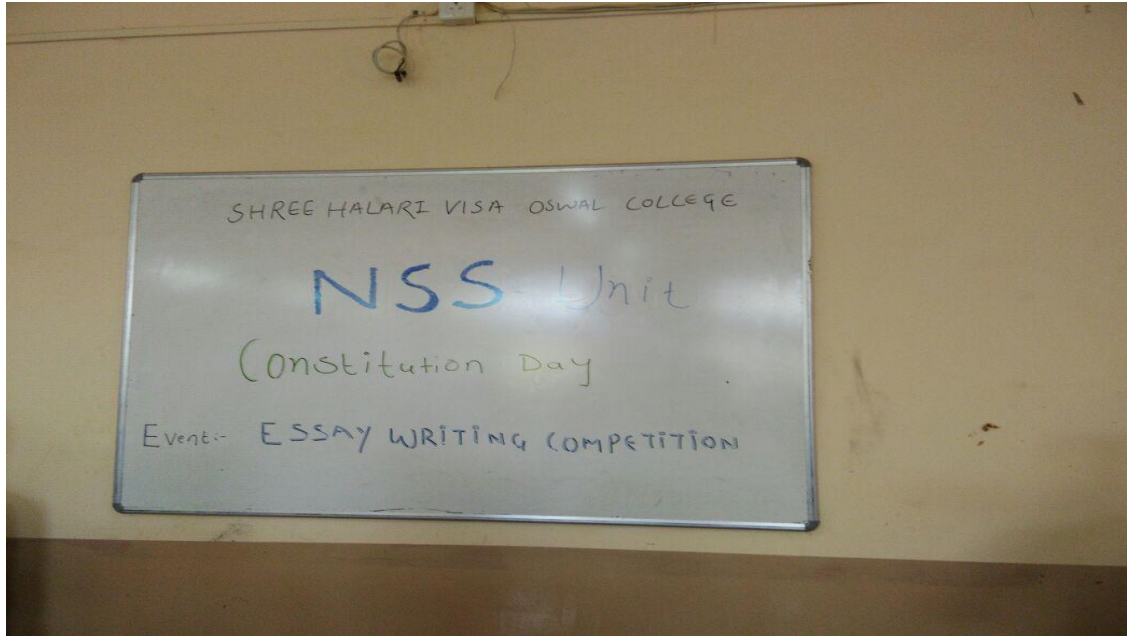 SHREE HALARI VISA OSWAL COLLEGE
NSS Unit
Constitution Day
Event:- ESSAY WRiTiNG COMPETiTiON